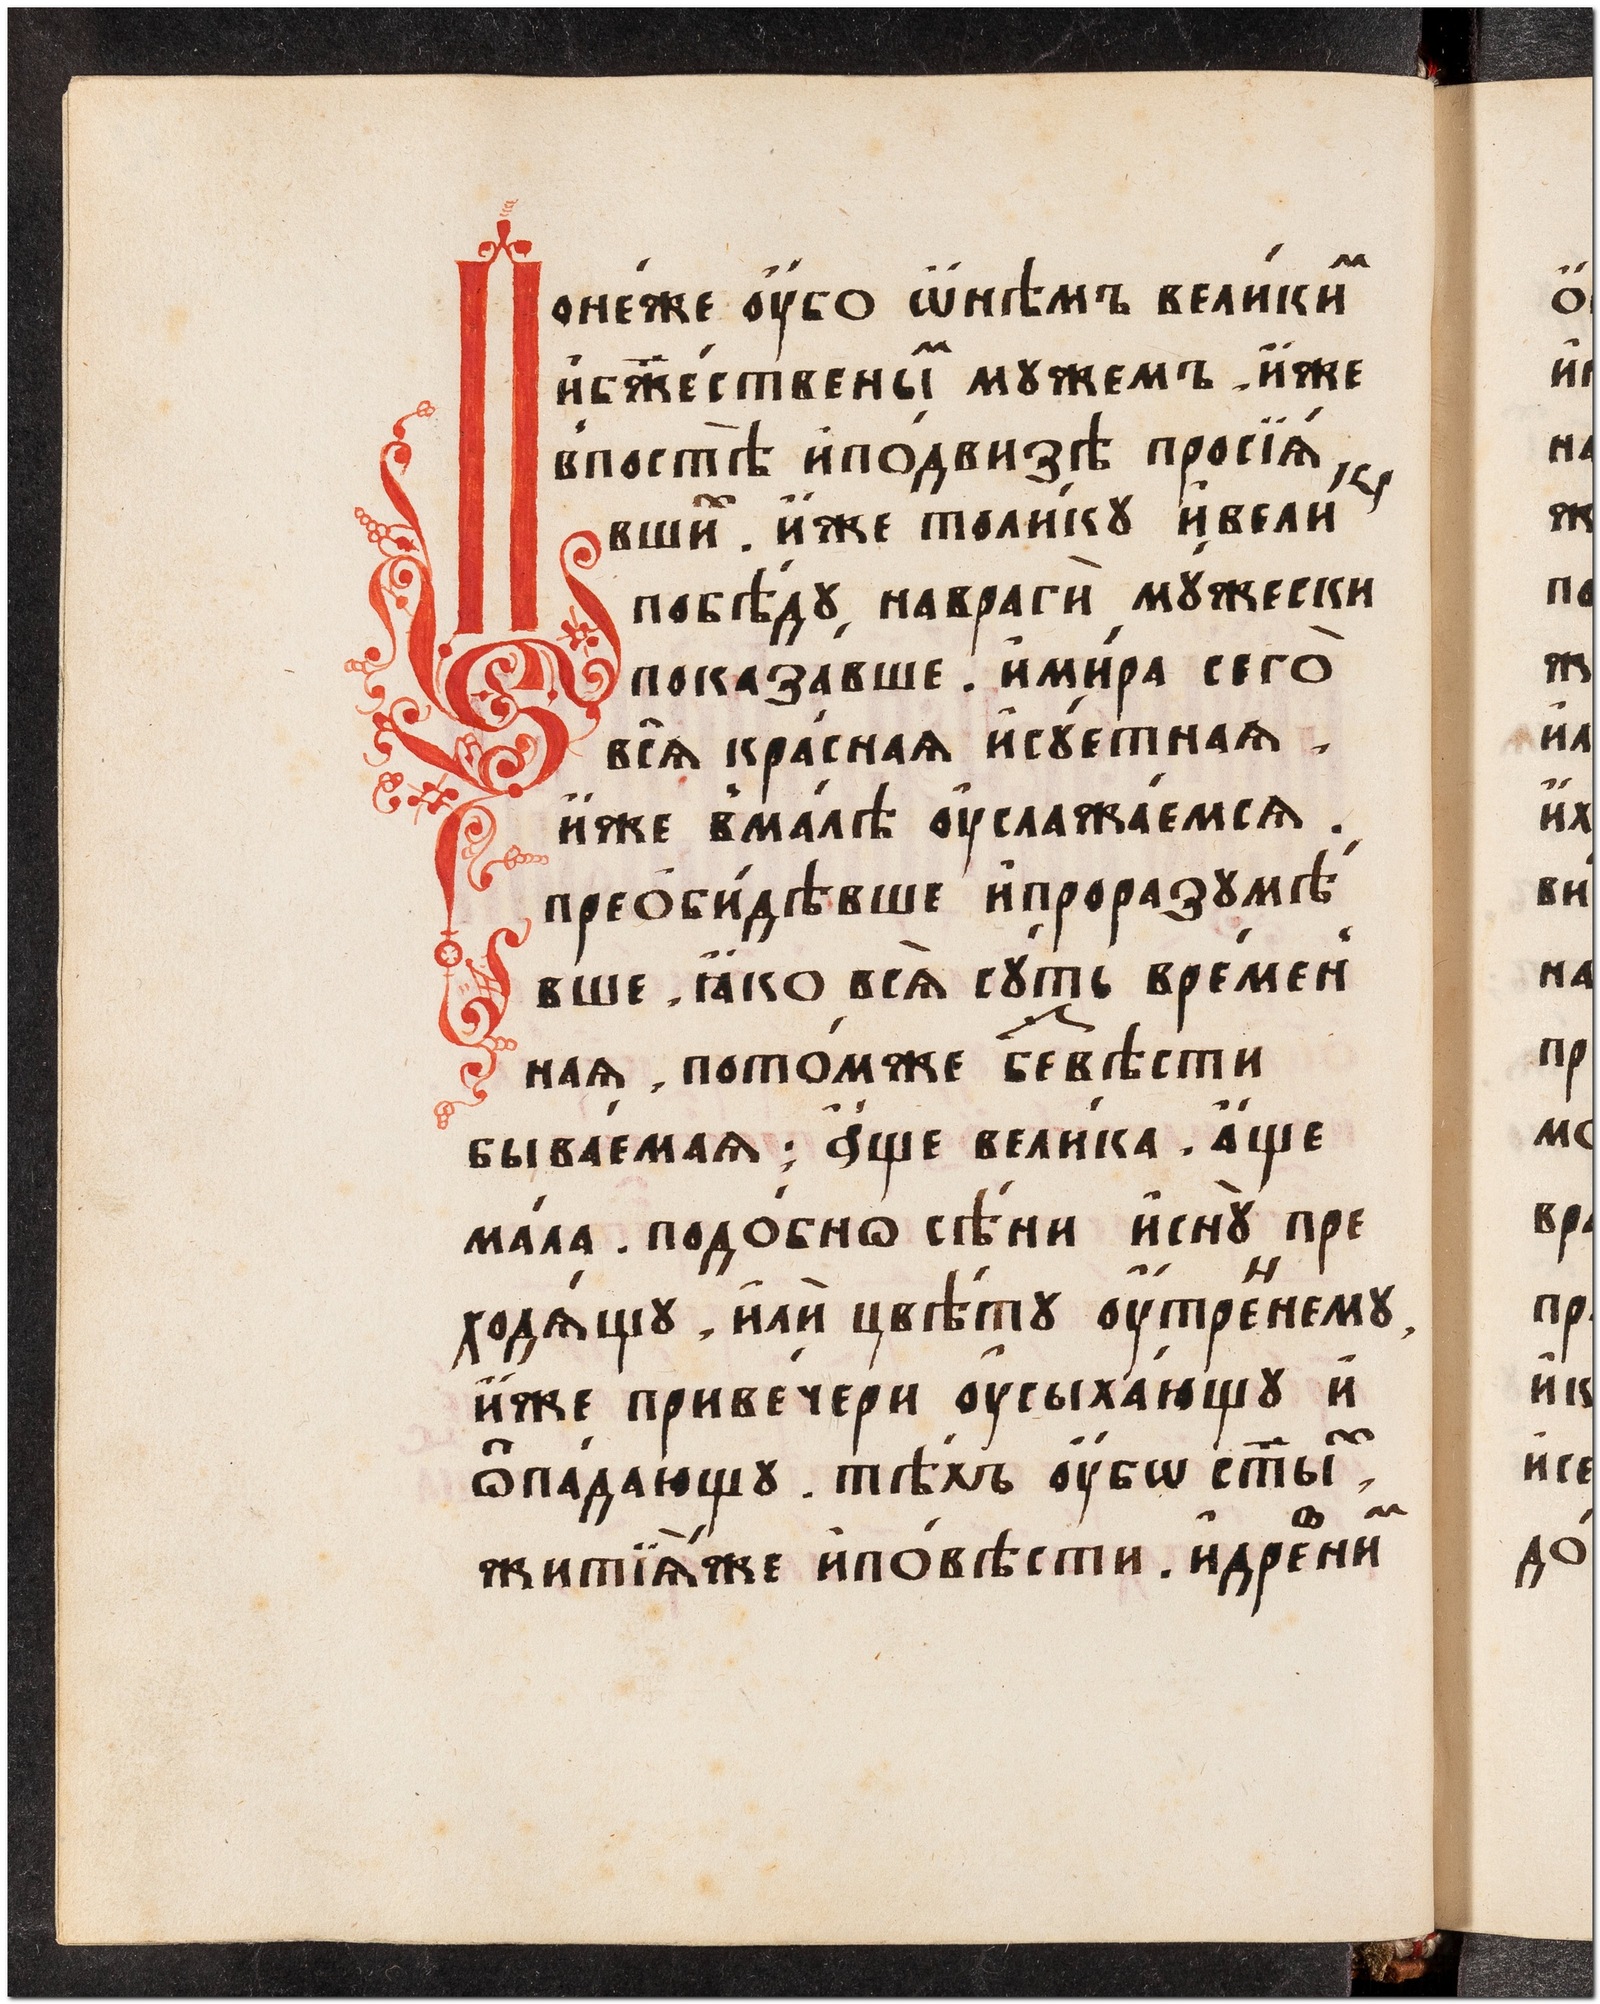 Поне́же ᲂу҆́бо ѡ҆нѣмъ вели́киⷨ
и҆бж҃е́ственыⷨ мꙋжемъ . и҆́же
в҆постѣ̀ и҆по́двизѣ просїѧ́
вшиⷨ . и҆́же толи́кꙋ и҆вели́кꙋ
побѣ́дꙋ , наврагѝ мꙋ́жески
показа́вше . и҆ми́ра сего̀
всѧ̑ кра́снаѧ и҆сꙋ́етнаѧ ,
и҆́же в҆ма́лѣ ᲂу҆слажа́емсѧ .
преѻби́дѣвше и҆проразꙋмѣ́
вше , ꙗ҆́ко всѧ̀ сꙋ́ть вре́мен
наѧ , пото́мже беⷥвѣсти
быва́емаѧ ; а҆́ще вели́ка . а҆́ще
ма́ла . подо́бнѡ сѣ́ни и҆снꙋ̀ пре
ходѧ́щꙋ , и҆лѝ цвѣ́тꙋ ᲂу҆́треⷩнемꙋ ,
и҆́же приве́чери ᲂу҆сыха́ющꙋ и҆
ѿпа́дающꙋ . тѣ́хъ ᲂу҆́бѡ ст҃ыⷯ ,
житїѧ̀же и҆по́вѣсти . и҆дреⷡниⷨ